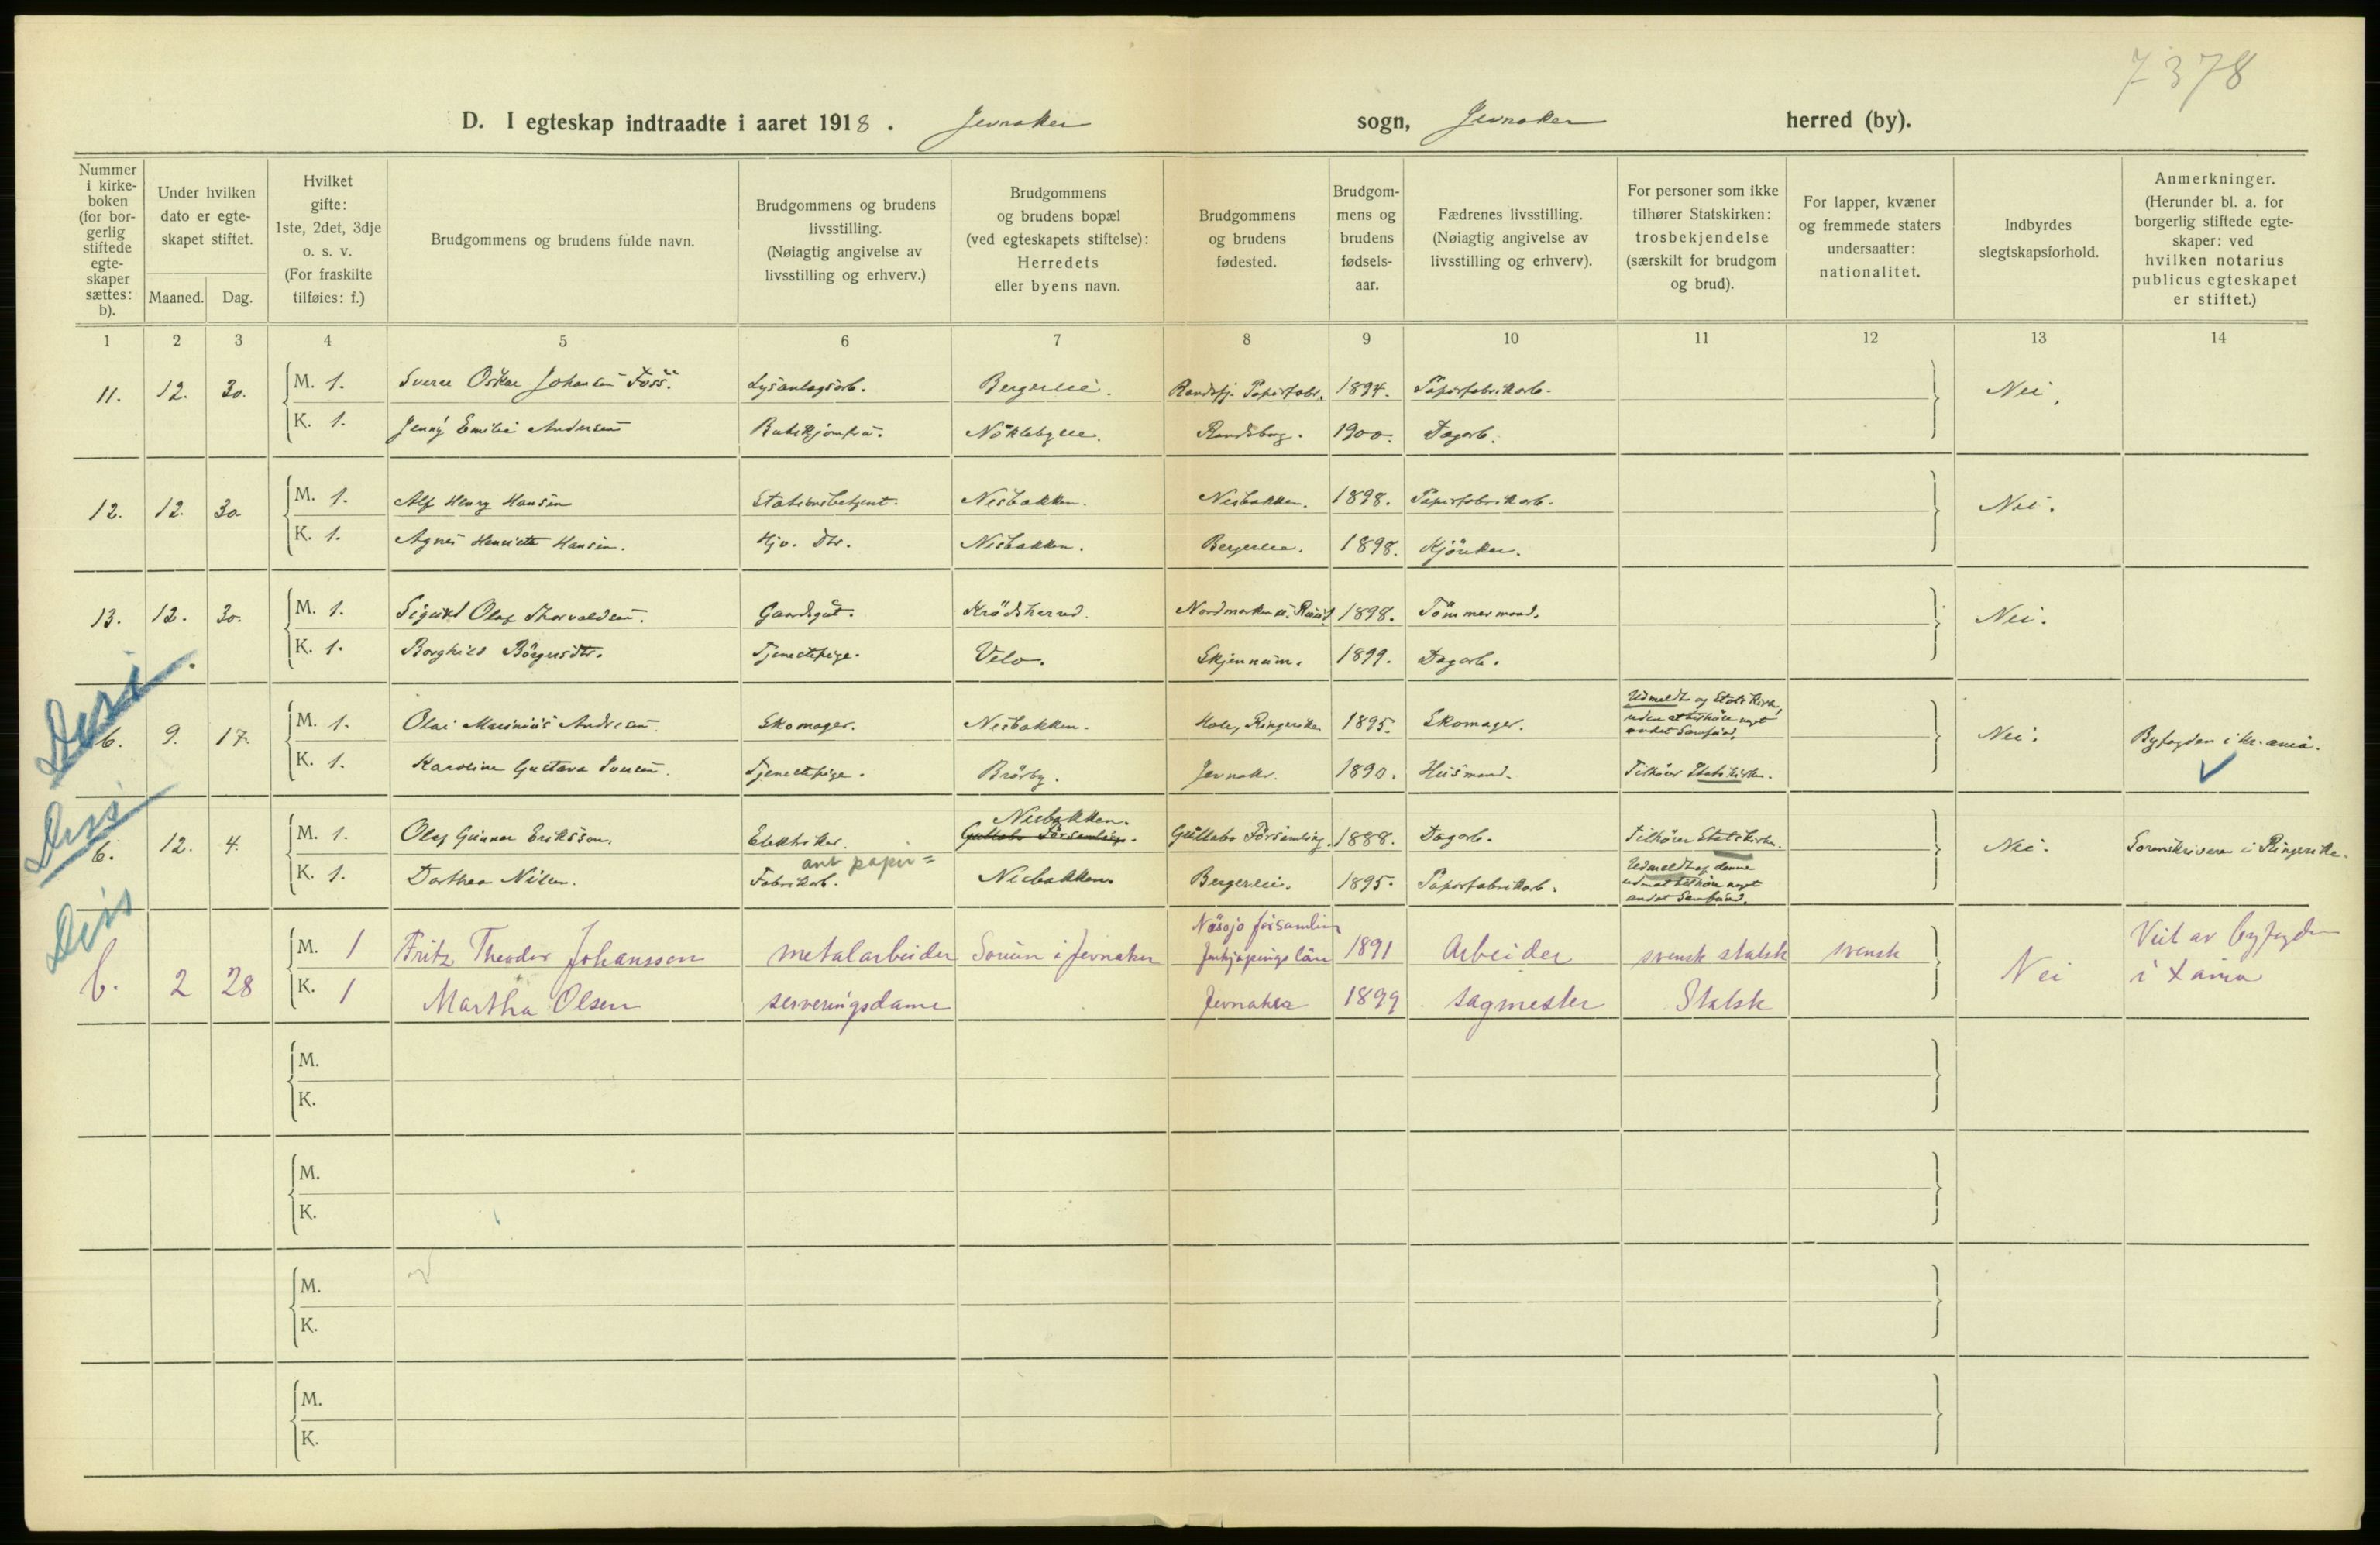 7378
D. I egteskap indtraadte i aaret 1918. Jevnaker sogn, Jevnaker herred (by).
Nummer i kirke-boken (for bor-gerlig stiftede egte-skaper sættes: b).
Under hvilken dato er egte-skapet stiftet.
Maaned. Dag.
Hvilket gifte: 1ste, 2det, 3dje o. s. v. (For fraskilte tilføies: f.)
Brudgommens og brudens fulde navn.
Brudgommens og brudens livsstilling. (Nøiagtig angivelse av livsstilling og erhverv.)
Brudgommens og brudens bopæl (ved egteskapets stiftelse): Herredets eller byens navn.
Brudgommens og brudens fødested.
Brudgom-mens og brudens fødsels-aar.
Fædrenes livsstilling. (Nøiagtig angivelse av livsstilling og erhverv).
For personer som ikke tilhører Statskirken: trosbekjendelse (særskilt for brudgom og brud).
For lapper, kvæner og fremmede staters undersaatter: nationalitet.
Indbyrdes slegtskapsforhold.
Anmerkninger. (Herunder bl. a. for borgerlig stiftede egte-skaper: ved hvilken notarius publicus egteskapet er stiftet.)
1 2 3 4 5 6 7 8 9 10 11 12 13 14
11. 12. 30. M. 1. Sverre Oskar Johansen Foss. Lysanlagsarb. Bergerei. Randsfj. Papirfabr. 1894. Papirfabrikarb. Nei.
K. 1. Jenny Emilie Andersen Butikjomfru. Nöklebyeie. Randsborg. 1900. Dagarb.
12. 12. 30. M. 1. Alf Henry Hansen Stationsbetjent. Nesbakken. Nesbakken. 1898. Papirfabrikarb. Nei.
K. 1. Agnes Henriette Hansen. Hjv. Dtr. Nesbakken. Bergereie. 1898. Kjörekar.
13. 12. 30. M. 1. Sigurd Olaf Thorvaldsen. Gaardsgut. Krödsherred. 1898. Tömmermand. Nei.
K. 1. Borghild Börgersdtr. Tjenestepige. Velo. Skjennum. 1899. Dagarb.
Diss
b. 9. 17. M. 1. Olai Marinius Andresen. Skomager. Nesbakken. Hole, Ringerike 1895. Skomager. Udmeldt af Statskirk, uden at tilhöre noget andet Samfund. Nei. Byfogden i Kr.ania.
K. 1. Karoline Gustava Iversen. Tjenestepige. Brörby. Jevnaker. 1890. Husmand. Tilhörer Statskirken.
Diss
b. 12. 4. M. 1. Olaf Gunnar Eriksson. Elektriker. Nesbakken. Gullabo Församling. Gullabo Församling. 1888. Dagarb. Tilhörer Statskirken. Nei. Sorenskriveren i Ringerike.
K. 1. Dorthea Nilsen. Fabrikarb. ant papir= Nesbakken. Bergereie. 1895. Papirfabrikarb. Udmeldt af denne uden at tilhöre noget andet Samfund.
Diss
b. 2 28 M. 1 Fritz Theodor Johansson metalarbeider i Jevnaker Nässjö församling Jönkjöpings län 1891 Arbeider svensk statsk svensk Nei Viet av byfogden i Xania
K. 1 Martha Olsen serveringsdame Jevnaker 1899 sagmester Statsk
M.
K.
M.
K.
M.
K.
M.
K.